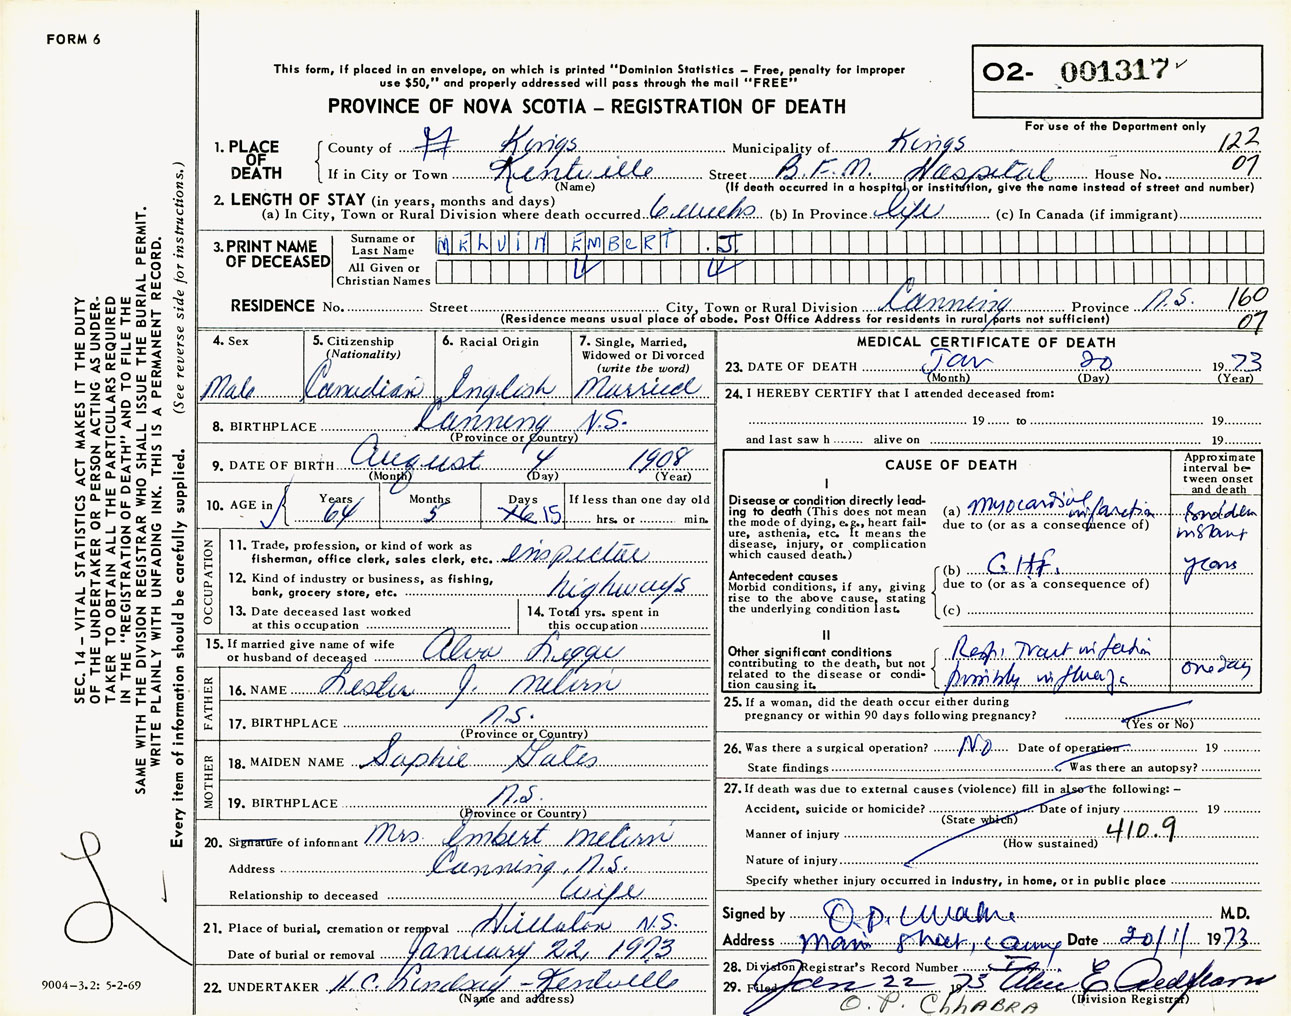 FORM 6
This form, if placed in an envelope, on which is printed "Dominion Statistics – Free, penalty for improper
use $50," and properly addressed will pass through the mail "FREE"
O2- 001317
For use of the Department only
PROVINCE OF NOVA SCOTIA – REGISTRATION OF DEATH
1. PLACE OF DEATH
County of Kings Municipality of Kings 122
If in City or Town Kentville Street B.F.M. Hospital House No. 07
(Name) (If death occurred in a hospital or institution, give the name instead of street and number)
2. LENGTH OF STAY (in years, months and days)
(a) In City, Town or Rural Division where death occurred 6 weeks (b) In Province life (c) In Canada (if immigrant)
3. PRINT NAME OF DECEASED
Surname or Last Name MELVIN EMBERT .J.
All Given or Christian Names
RESIDENCE No. Street City, Town or Rural Division Canning Province N.S. 160
(Residence means usual place of abode. Post Office Address for residents in rural parts not sufficient) 07
4. Sex Male
5. Citizenship (Nationality) Canadian
6. Racial Origin English
7. Single, Married, Widowed or Divorced (write the word) Married
8. BIRTHPLACE Canning N.S.
(Province or Country)
9. DATE OF BIRTH August 4 1908
(Month) (Day) (Year)
10. AGE in Years 64 Months 5 Days 16 15 If less than one day old
hrs. or min.
OCCUPATION
11. Trade, profession, or kind of work as
fisherman, office clerk, sales clerk, etc. inspector
12. Kind of industry or business, as fishing,
bank, grocery store, etc. highways
13. Date deceased last worked
at this occupation
14. Total yrs. spent in
this occupation
15. If married give name of wife
or husband of deceased Alva Legge
FATHER
16. NAME Lester J. Melvin
17. BIRTHPLACE N.S.
(Province or Country)
MOTHER
18. MAIDEN NAME Sophie Gates
19. BIRTHPLACE N.S.
(Province or Country)
20. Signature of informant Mrs. Embert Melvin
Address Canning, N.S.
Relationship to deceased Wife
21. Place of burial, cremation or removal Hillaton N.S.
Date of burial or removal January 22, 1973
22. UNDERTAKER H.C. Lindsay - Kentville
(Name and address)
MEDICAL CERTIFICATE OF DEATH
23. DATE OF DEATH Jan 20 1973
(Month) (Day) (Year)
24. I HEREBY CERTIFY that I attended deceased from:
19 to 19
and last saw h alive on 19
CAUSE OF DEATH
Approximate interval between onset and death
I
Disease or condition directly lead-
ing to death (This does not mean
the mode of dying, e.g., heart fail-
ure, asthenia, etc. It means the
disease, injury, or complication
which caused death.)
(a) myocardial infarction
due to (or as a consequence of)
sudden instant
Antecedent causes
Morbid conditions, if any, giving
rise to the above cause, stating
the underlying condition last.
(b) C.H.F.
due to (or as a consequence of)
years
(c)
II
Other significant conditions
contributing to the death, but not
related to the disease or condi-
tion causing it.
Resp. Tract infection
possibly influenza
one day
25. If a woman, did the death occur either during
pregnancy or within 90 days following pregnancy?
(Yes or No)
26. Was there a surgical operation? No Date of operation 19
State findings Was there an autopsy?
27. If death was due to external causes (violence) fill in also the following: –
Accident, suicide or homicide? Date of injury 19
(State which)
Manner of injury 410.9
(How sustained)
Nature of injury
Specify whether injury occurred in industry, in home, or in public place
Signed by M.D.
Address Main Street, Date 20/1/1973
28. Division Registrar's Record Number
29. Filed Jan 22 1973
(Division Registrar)
O. P. CHHABRA
SEC. 14 – VITAL STATISTICS ACT MAKES IT THE DUTY
OF THE UNDERTAKER OR PERSON ACTING AS UNDER-
TAKER TO OBTAIN ALL THE PARTICULARS REQUIRED
IN THE "REGISTRATION OF DEATH" AND TO FILE THE
SAME WITH THE DIVISION REGISTRAR WHO SHALL ISSUE THE BURIAL PERMIT.
WRITE PLAINLY WITH UNFADING INK. THIS IS A PERMANENT RECORD.
Every item of information should be carefully supplied. (See reverse side for instructions.)
9004-3.2: 5-2-69